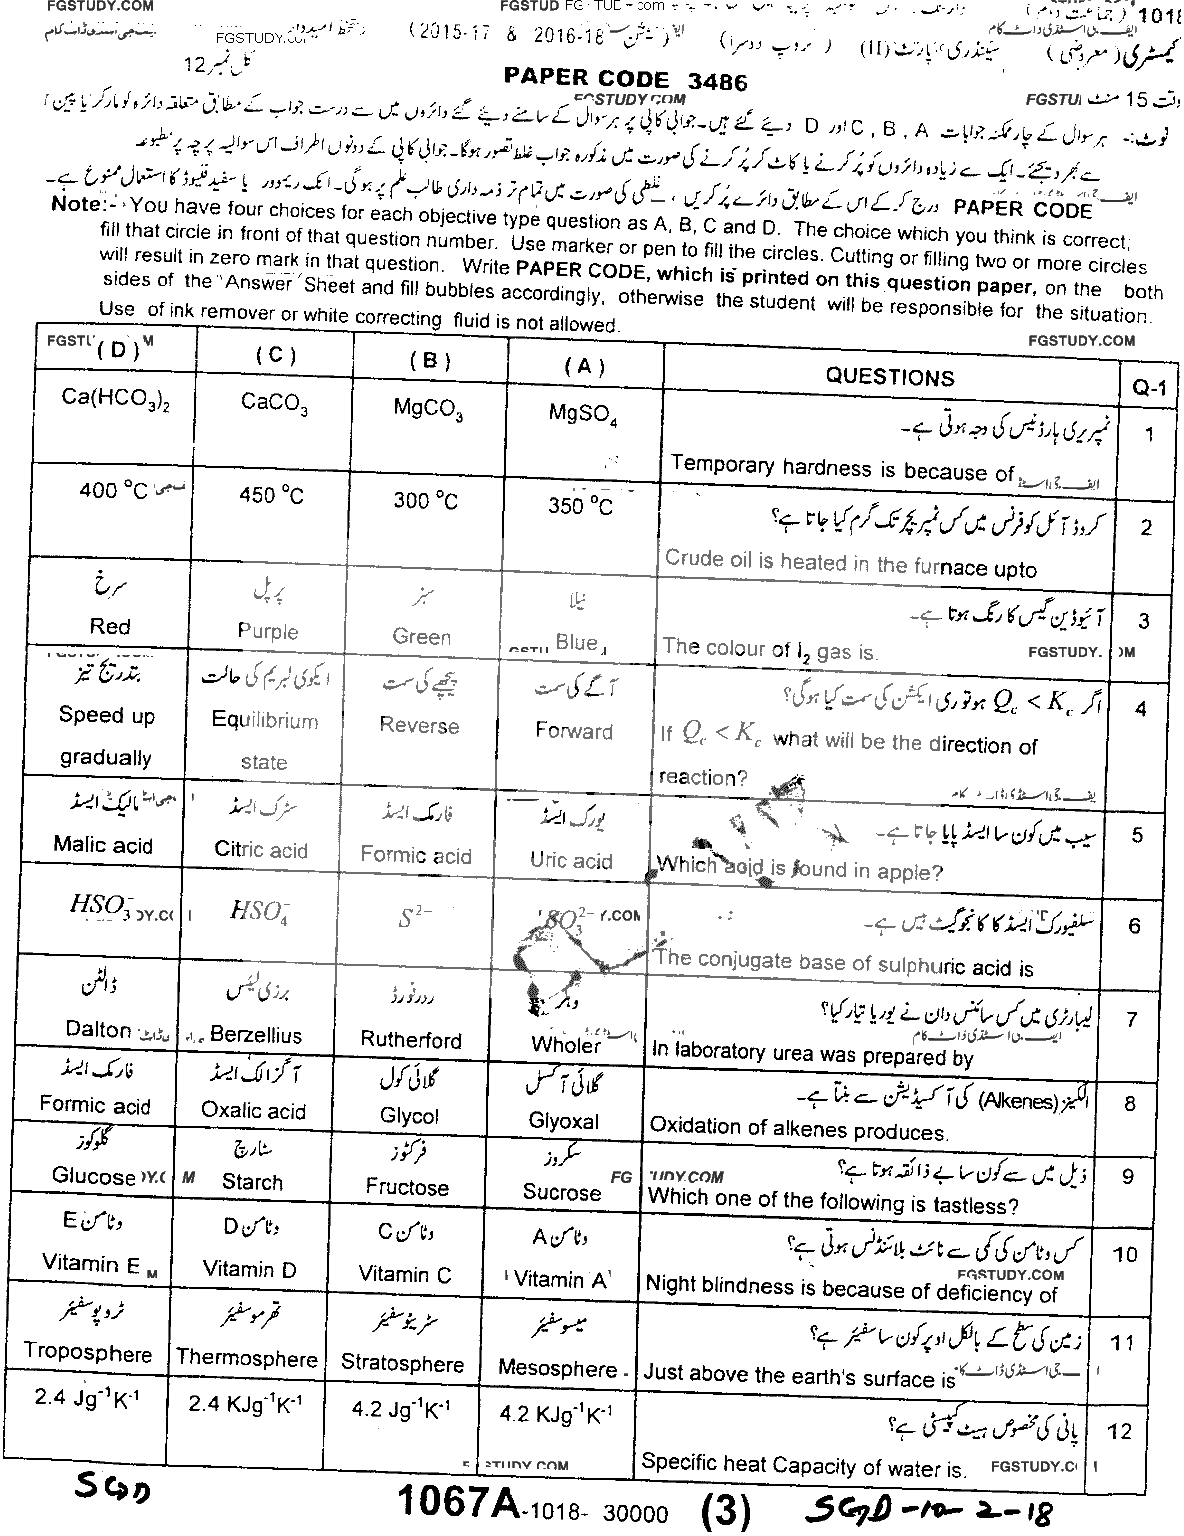 FGSTUDY.COM
1018
(2015-17 & 2016-18
FGSTUDY
کیمسٹری (معروضی)
سیکنڈری پارٹ (II)
(گروپ دوسرا)
کل نمبر 12
PAPER CODE 3486
FGSTUDY.COM
وقت 15 منٹ
نوٹ:- ہر سوال کے چار ممکنہ جوابات A , B , C اور D دیئے گئے ہیں۔ جوابی کاپی پر ہر سوال کے سامنے دیئے گئے دائروں میں سے درست جواب کے مطابق متعلقہ دائرہ کو مارکر یا پین
سے بھر دیجئے۔ ایک سے زیادہ دائروں کو پُر کرنے یا کاٹ کر پُر کرنے کی صورت میں مذکورہ جواب غلط تصور ہوگا۔ جوابی کاپی کے دونوں اطراف اس سوالیہ پرچہ پر مطبوعہ
PAPER CODE درج کر کے اس کے مطابق دائرے پُر کریں، غلطی کی صورت میں تمام تر ذمہ داری طالب علم پر ہوگی۔ انک ریموور یا سفید فلیوڈ کا استعمال ممنوع ہے۔
Note:- You have four choices for each objective type question as A, B, C and D. The choice which you think is correct;
fill that circle in front of that question number. Use marker or pen to fill the circles. Cutting or filling two or more circles
will result in zero mark in that question. Write PAPER CODE, which is printed on this question paper, on the both
sides of the "Answer Sheet and fill bubbles accordingly, otherwise the student will be responsible for the situation.
Use of ink remover or white correcting fluid is not allowed.
FGSTUDY.COM
(D) (C) (B) (A) QUESTIONS Q-1
ٹمپریری ہارڈنیس کی وجہ ہوتی ہے۔
Ca(HCO₃)₂ CaCO₃ MgCO₃ MgSO₄ 1
Temporary hardness is because of
کروڈ آئل کو فرنس میں کس ٹمپریچر تک گرم کیا جاتا ہے؟
400 °C 450 °C 300 °C 350 °C 2
Crude oil is heated in the furnace upto
سرخ پرپل سبز نیلا آئیوڈین گیس کا رنگ ہوتا ہے۔
Red Purple Green Blue The colour of I₂ gas is. 3
FGSTUDY. OM
بتدریج تیز ایکوی لبریم کی حالت پیچھے کی سمت آگے کی سمت اگر Qc < Kc ہو تو ری ایکشن کی سمت کیا ہوگی؟
Speed up Equilibrium Reverse Forward If Qc < Kc what will be the direction of 4
gradually state reaction?
مالیک ایسڈ سٹرک ایسڈ فارمک ایسڈ یورک ایسڈ سیب میں کون سا ایسڈ پایا جاتا ہے۔
Malic acid Citric acid Formic acid Uric acid Which acid is found in apple? 5
سلفیورک ایسڈ کا کانجوگیٹ بیس ہے۔
HSO₃⁻ HSO₄⁻ S²⁻ SO₃²⁻ The conjugate base of sulphuric acid is 6
ڈالٹن برزی لیئس ردرفورڈ وہلر لیبارٹری میں کس سائنس دان نے یوریا تیار کیا؟
Dalton Berzellius Rutherford Wholer In laboratory urea was prepared by 7
فارمک ایسڈ آگزالک ایسڈ گلائی کول گلائی آکسل الکینز (Alkenes) کی آکسیڈیشن سے بنتا ہے۔
Formic acid Oxalic acid Glycol Glyoxal Oxidation of alkenes produces. 8
گلوکوز سٹارچ فرکٹوز سکروز ذیل میں سے کون سا بے ذائقہ ہوتا ہے؟
Glucose Starch Fructose Sucrose Which one of the following is tastless? 9
وٹامن E وٹامن D وٹامن C وٹامن A کس وٹامن کی کمی سے نائٹ بلائنڈنس ہوتی ہے؟
FGSTUDY.COM
Vitamin E Vitamin D Vitamin C Vitamin A Night blindness is because of deficiency of 10
ٹروپوسفیئر تھرموسفیئر سٹریٹوسفیئر میسوسفیئر زمین کی سطح کے بالکل اوپر کون سا سفیئر ہے؟
Troposphere Thermosphere Stratosphere Mesosphere Just above the earth's surface is 11
پانی کی مخصوص ہیٹ کپیسٹی ہے؟
2.4 Jg⁻¹K⁻¹ 2.4 KJg⁻¹K⁻¹ 4.2 Jg⁻¹K⁻¹ 4.2 KJg⁻¹K⁻¹ 12
Specific heat Capacity of water is.
SGD 1067A-1018- 30000 (3) SGD-10-2-18